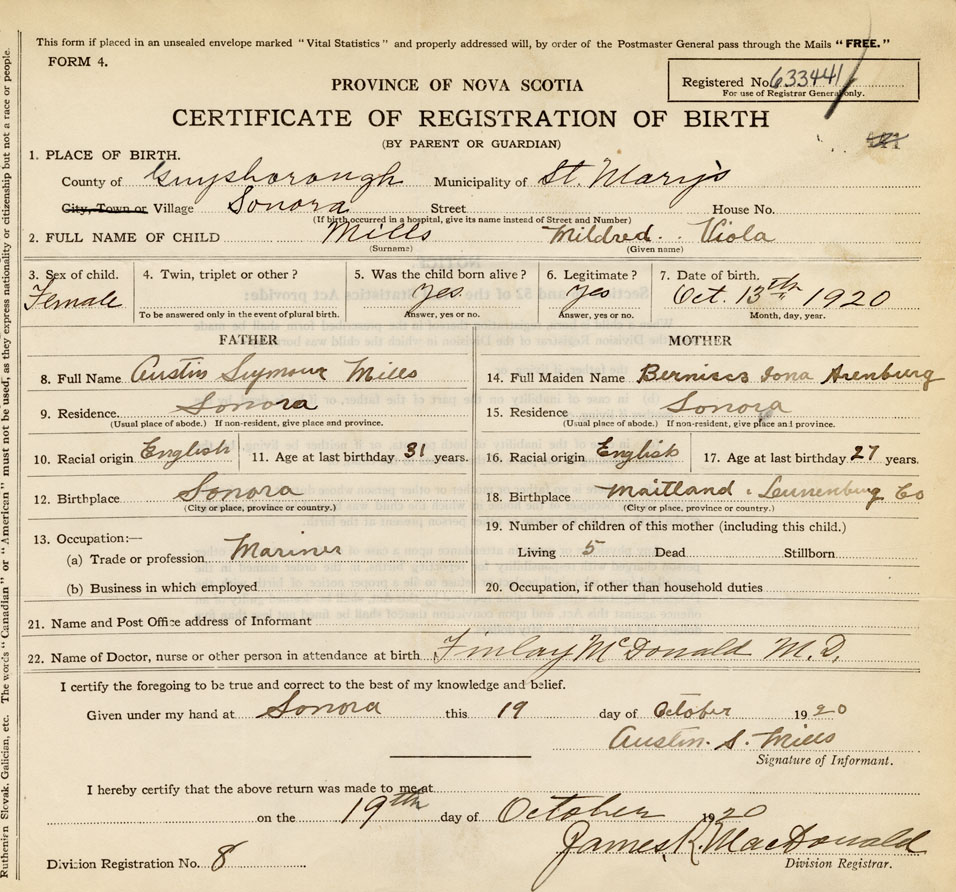 This form if placed in an unsealed envelope marked "Vital Statistics" and properly addressed will, by order of the Postmaster General pass through the Mails "FREE."
FORM 4.
Registered No. 633441
For use of Registrar General only.
PROVINCE OF NOVA SCOTIA
CERTIFICATE OF REGISTRATION OF BIRTH
(BY PARENT OR GUARDIAN)
1. PLACE OF BIRTH.
County of Guysborough Municipality of St. Mary's
City, Town or Village Sonora Street House No.
(If birth occurred in a hospital, give its name instead of Street and Number)
2. FULL NAME OF CHILD Mills Mildred Viola
(Surname) (Given name)
3. Sex of child. 4. Twin, triplet or other? 5. Was the child born alive? 6. Legitimate? 7. Date of birth.
Female Yes Yes Oct. 13th 1920
To be answered only in the event of plural birth. Answer, yes or no. Answer, yes or no. Month, day, year.
FATHER
8. Full Name Austin Seymour Mills
9. Residence. Sonora
(Usual place of abode.) If non-resident, give place and province.
10. Racial origin English 11. Age at last birthday 31 years.
12. Birthplace Sonora
(City or place, province or country.)
13. Occupation:—
(a) Trade or profession Mariner
(b) Business in which employed
MOTHER
14. Full Maiden Name Iona Arenburg
15. Residence Sonora
(Usual place of abode.) If non-resident, give place and province.
16. Racial origin English 17. Age at last birthday 27 years.
18. Birthplace Maitland Lunenburg Co
(City or place, province or country.)
19. Number of children of this mother (including this child.)
Living 5 Dead Stillborn
20. Occupation, if other than household duties
21. Name and Post Office address of Informant
22. Name of Doctor, nurse or other person in attendance at birth Finlay McDonald M.D.
I certify the foregoing to be true and correct to the best of my knowledge and belief.
Given under my hand at Sonora this 19 day of October 1920
Austin. S. Mills
Signature of Informant.
I hereby certify that the above return was made to me at
on the 19th day of October 1920
James R. MacDonald
Division Registration No. 8 Division Registrar.
Ruthenian Slovak, Galician, etc. The words "Canadian" or "American" must not be used, as they express nationality or citizenship but not a race or people.